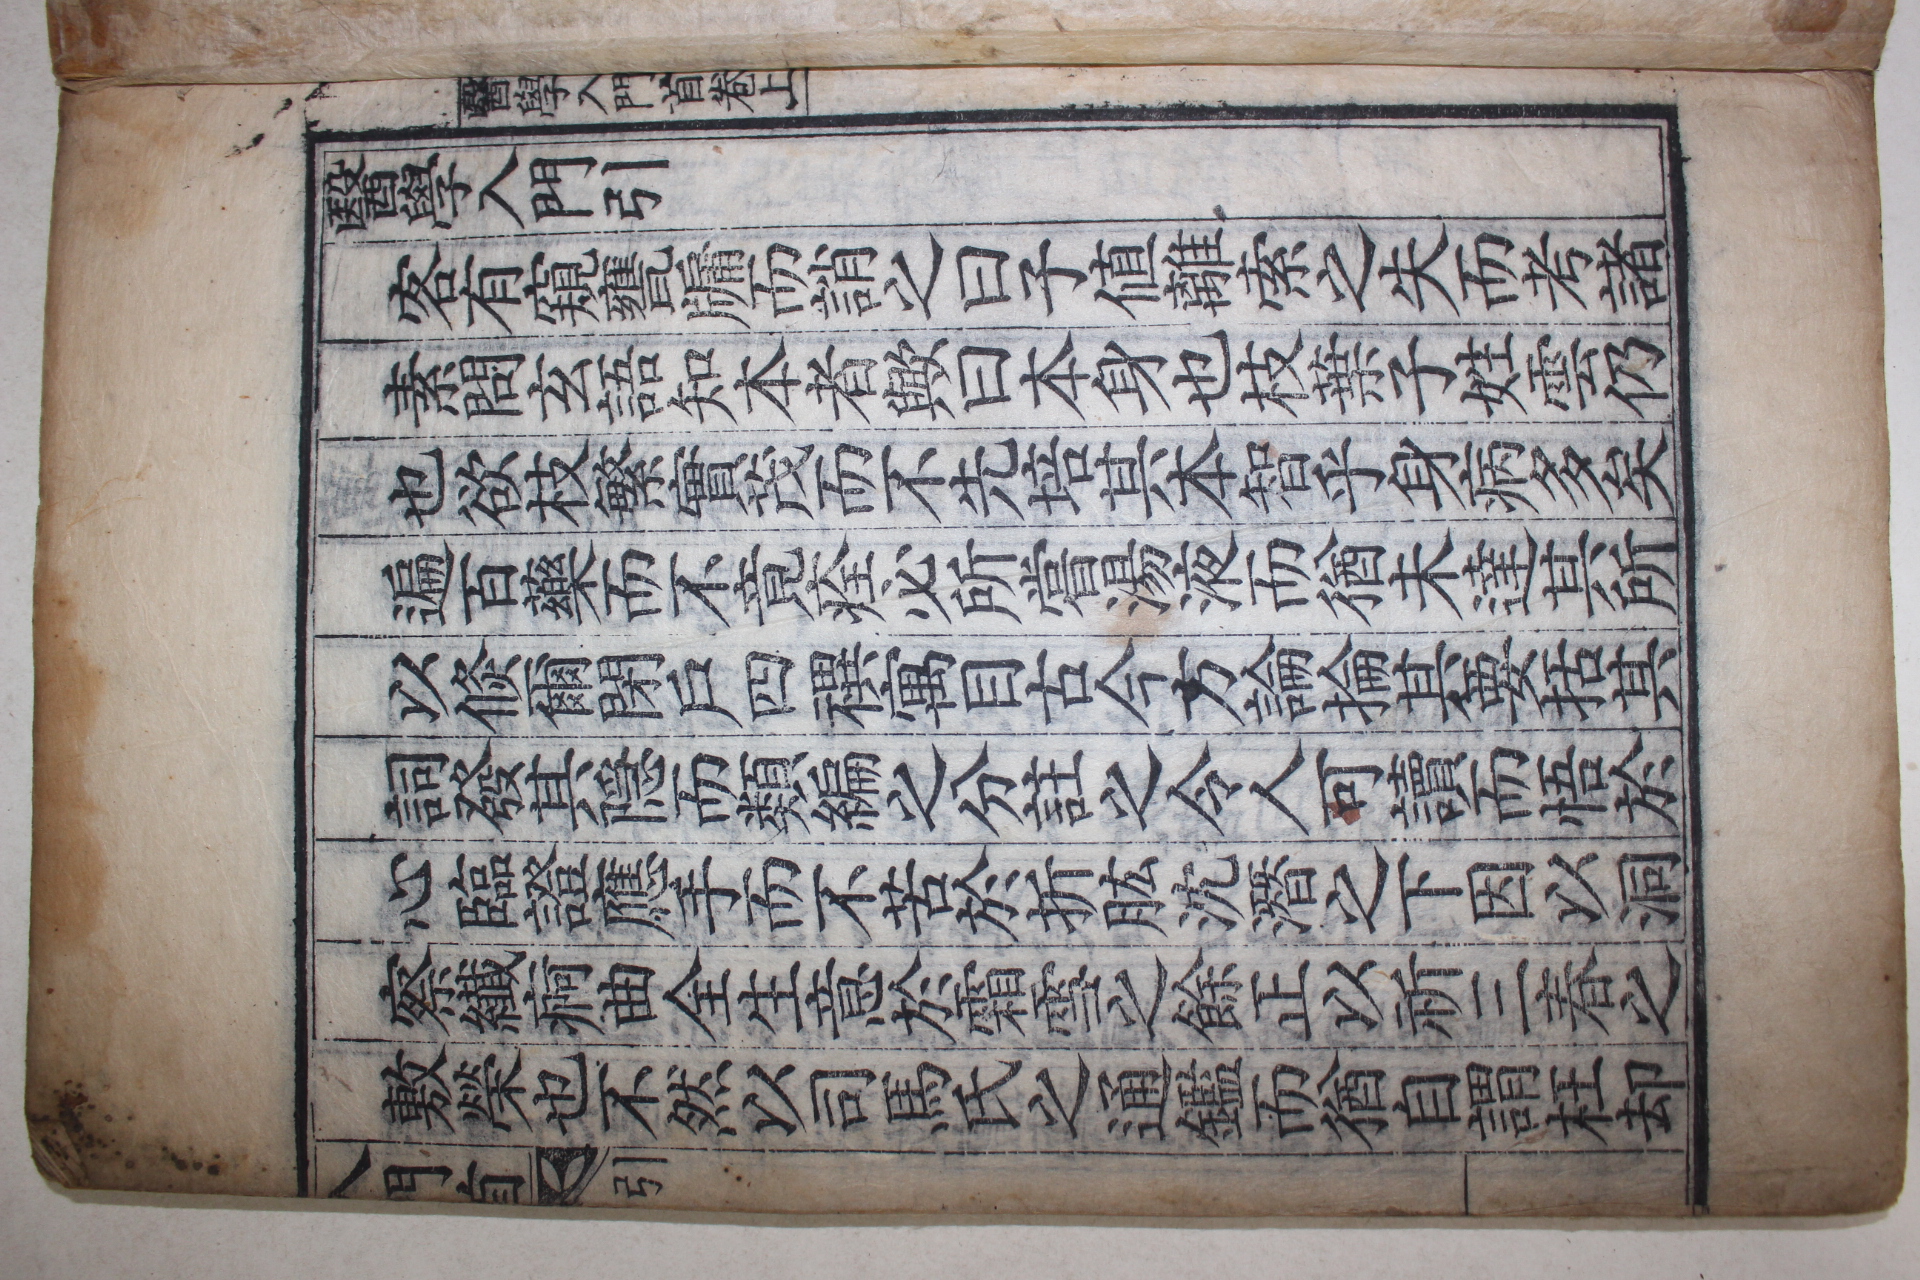 醫學入門首卷上
醫學入門引
客有窺甕牖而誚之曰子值離索之失而考諸
素問玄語知本者歟曰本身也枝葉子姓雲仍
也欲枝繁實茂而不先培其本智乎身病多矣
遍百藥而不竟痊必所嘗湯液而猶未達其所
以倐爾閉戶四禩寓目古今方論掄其要括其
詞發其隱而類編之分註之令人可讀而悟於
心臨證應手而不苦於折肱沈潛之下因以洞
察纖痾曲全生意於霜雪之餘正以祈三春之
敷榮也不然以司馬氏之通鑑而猶自謂枉却
入門首
引